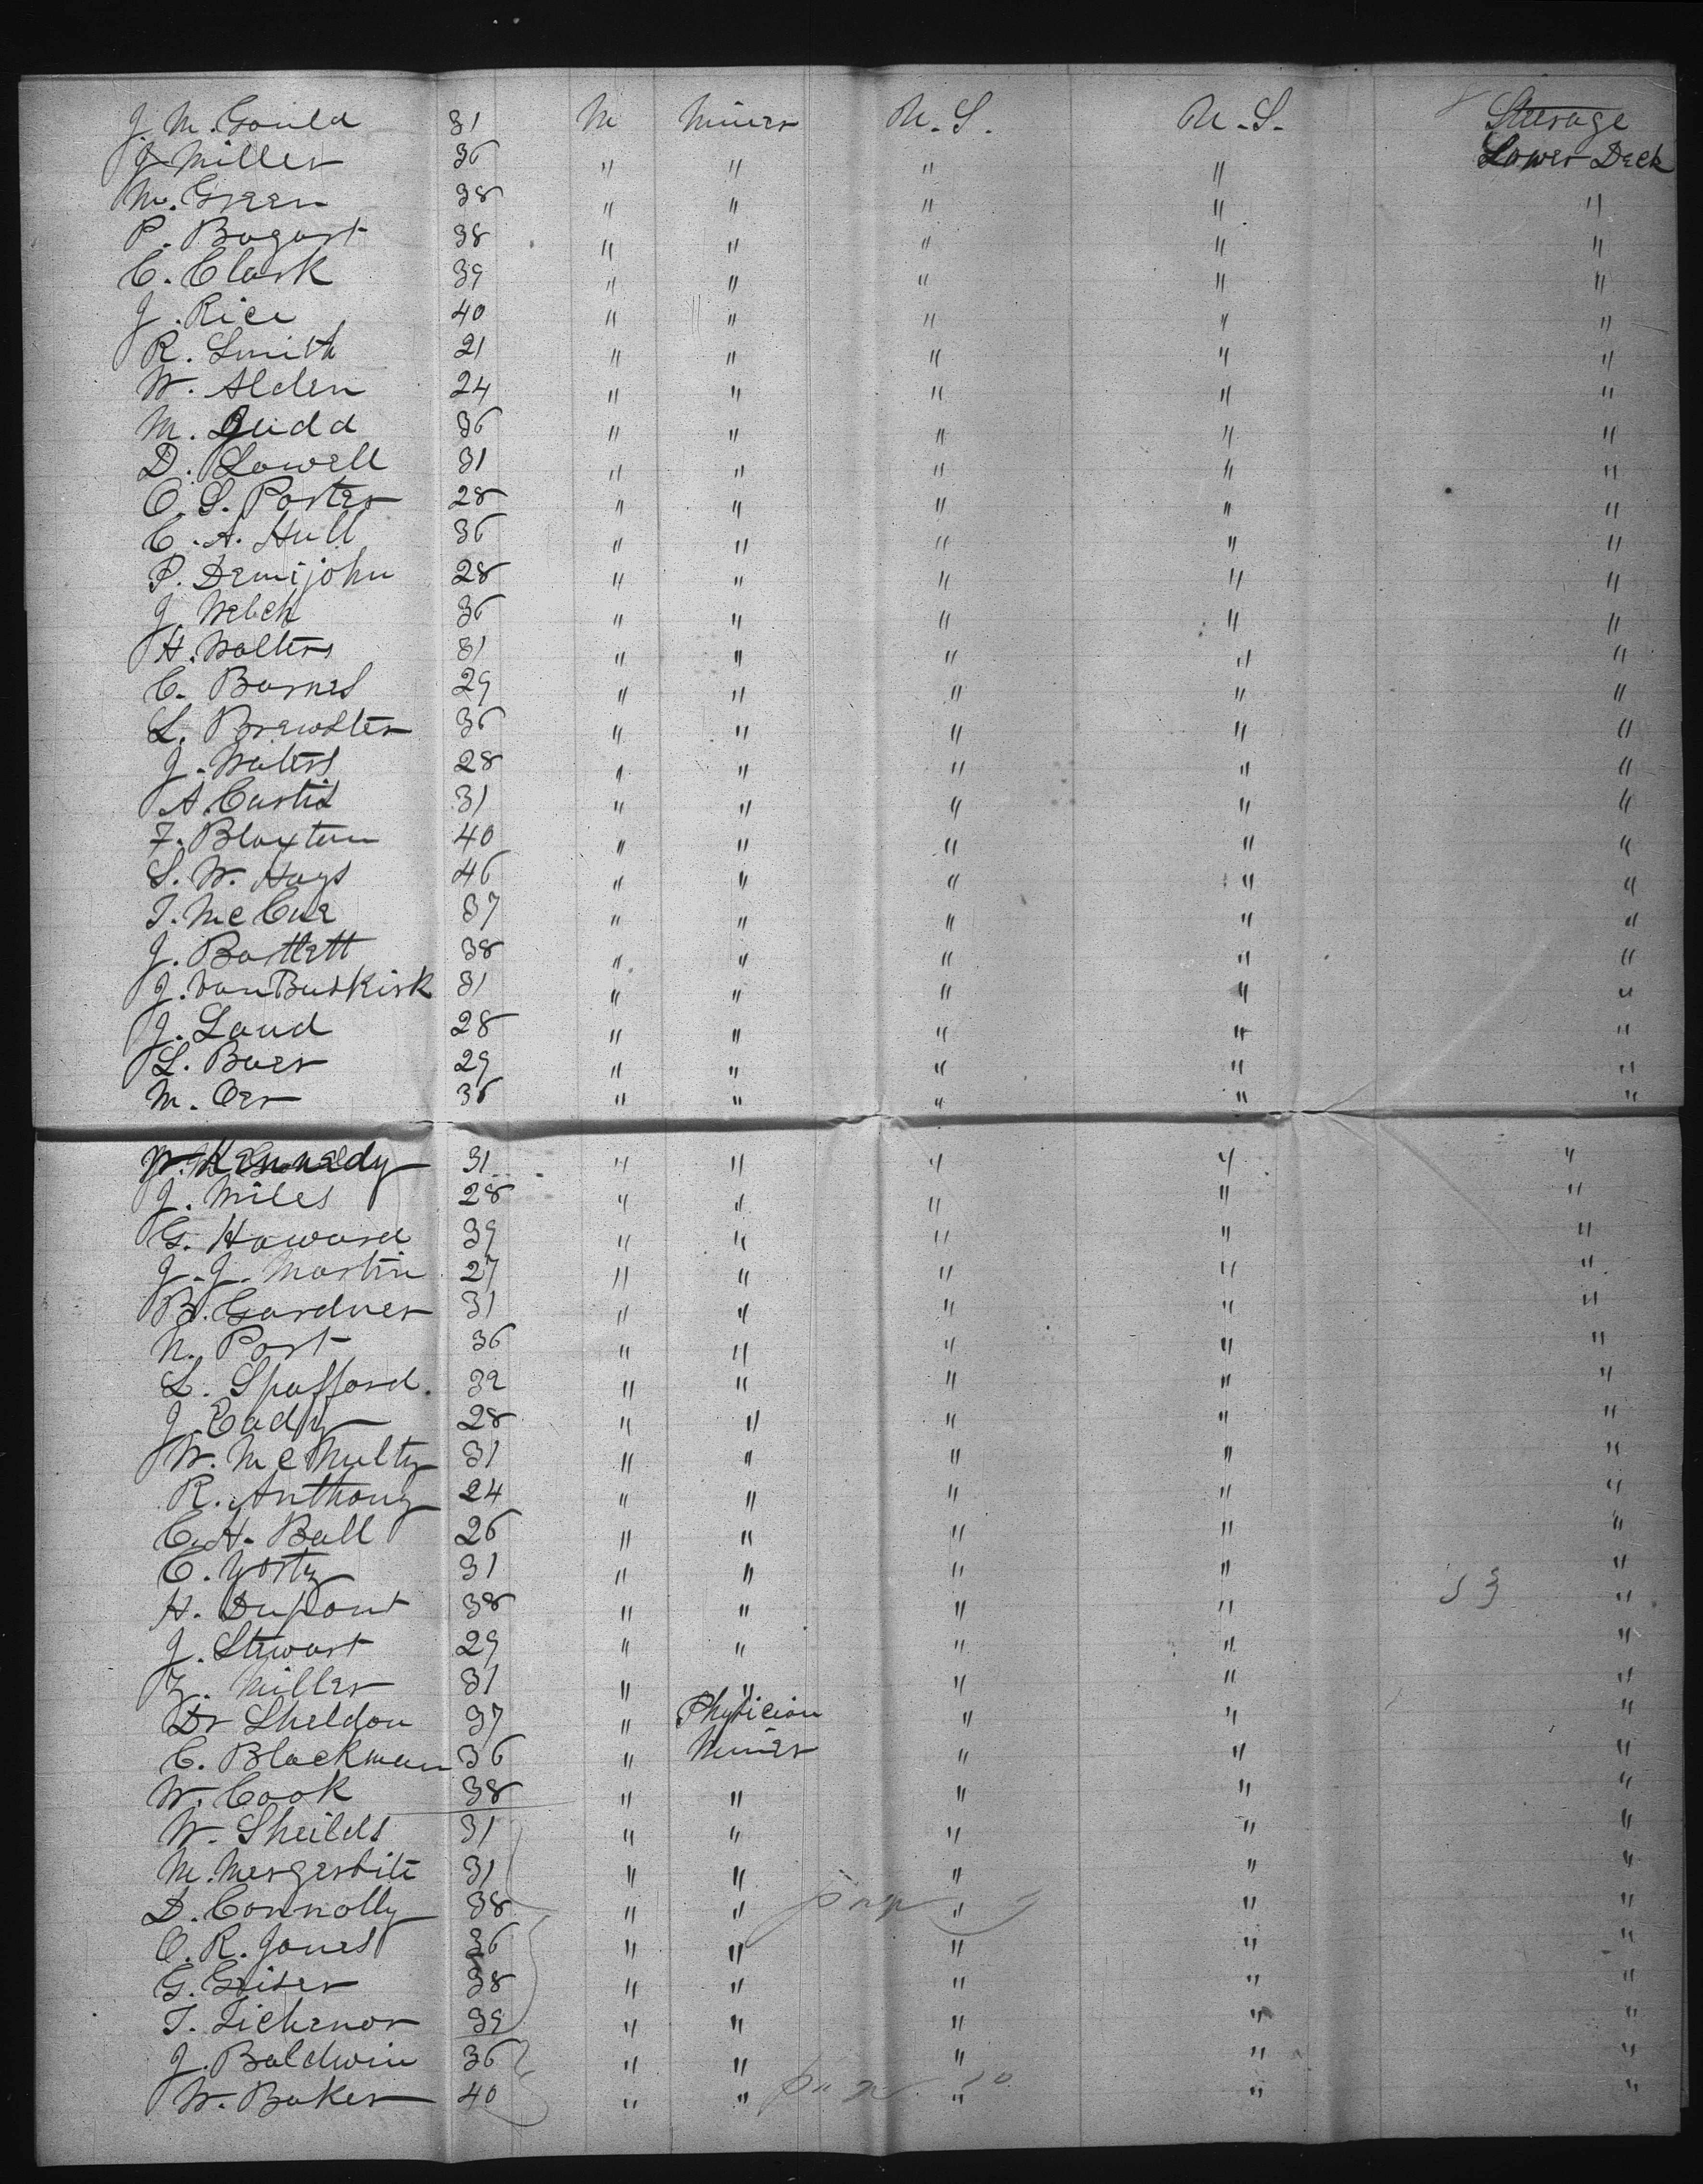 J. M. Gould 31 M Miner U.S. U.S. Steerage
J Miller 36 " " " " Lower Deck
M. Green 38 " " " " "
P. Bogart 38 " " " " "
C. Clark 39 " " " " "
J. Rice 40 " " " " "
R. Smith 21 " " " " "
W. Alden 24 " " " " "
M. Judd 36 " " " " "
D. Lowell 31 " " " " "
O. S. Porter 28 " " " " "
C. A. Hull 36 " " " " "
P. Demijohn 28 " " " " "
J. Welch 36 " " " " "
H. Walters 31 " " " " "
C. Barnes 29 " " " " "
L. Brewster 36 " " " " "
J. Waters 28 " " " " "
A. Curtis 31 " " " " "
F. Blaxton 40 " " " " "
S. W. Hays 46 " " " " "
T. McCue 37 " " " " "
J. Bartlett 38 " " " " "
J. Van Buskirk 31 " " " " "
J. Land 28 " " " " "
L. Baer 29 " " " " "
M. Oer 36 " " " " "
W. Kennedy 31 " " " " "
J. Miles 28 " " " " "
G. Howard 39 " " " " "
J. J. Martin 27 " " " " "
B. Gardner 31 " " " " "
N. Port 36 " " " " "
L. Spafford. 32 " " " " "
J. Cady 28 " " " " "
W. McNulty 31 " " " " "
R. Anthony 24 " " " " "
C. H. Ball 26 " " " " "
C. Yorty 31 " " " " "
H. Dupont 38 " " " " 53 "
J. Stewart 29 " " " " "
Z. Miller 31 " " " " "
Dr Sheldon 37 " Physician " " "
C. Blackman 36 " Miner " " "
W. Cook 38 " " " " "
W. Sheilds 31 " " " " "
M. Mergerbite 31 " " " " "
D. Connolly 38 " " " " "
O. R. Jones 36 " " " " "
G. Geiser 38 " " " " "
T. Tichenor 39 " " " " "
J. Baldwin 36 " " " " "
W. Baker 40 " " page 10 " " "